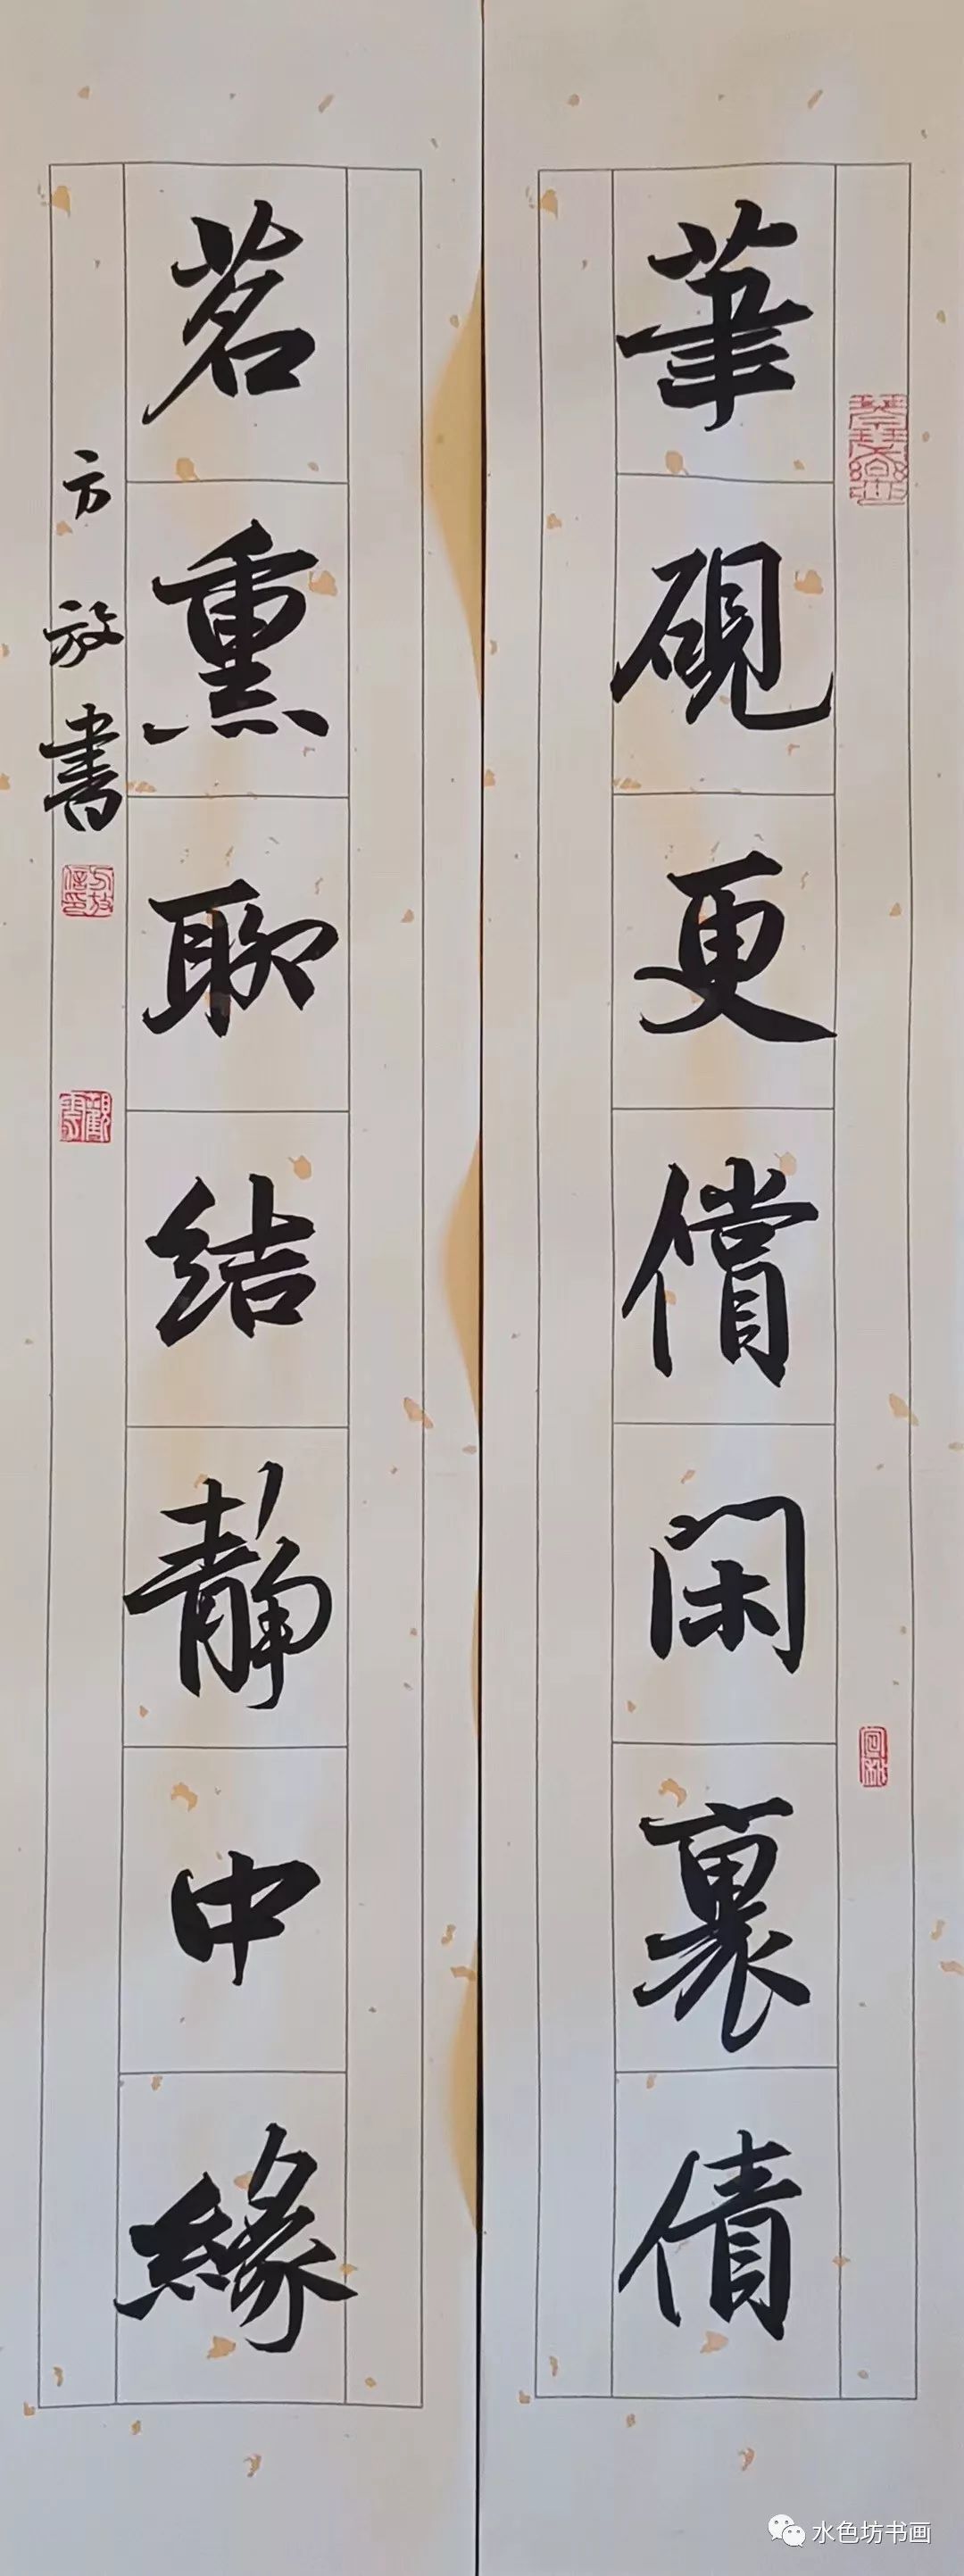 筆硯更償閑裏債
茗熏聊結靜中緣
方放書
方放信印
水色坊书画